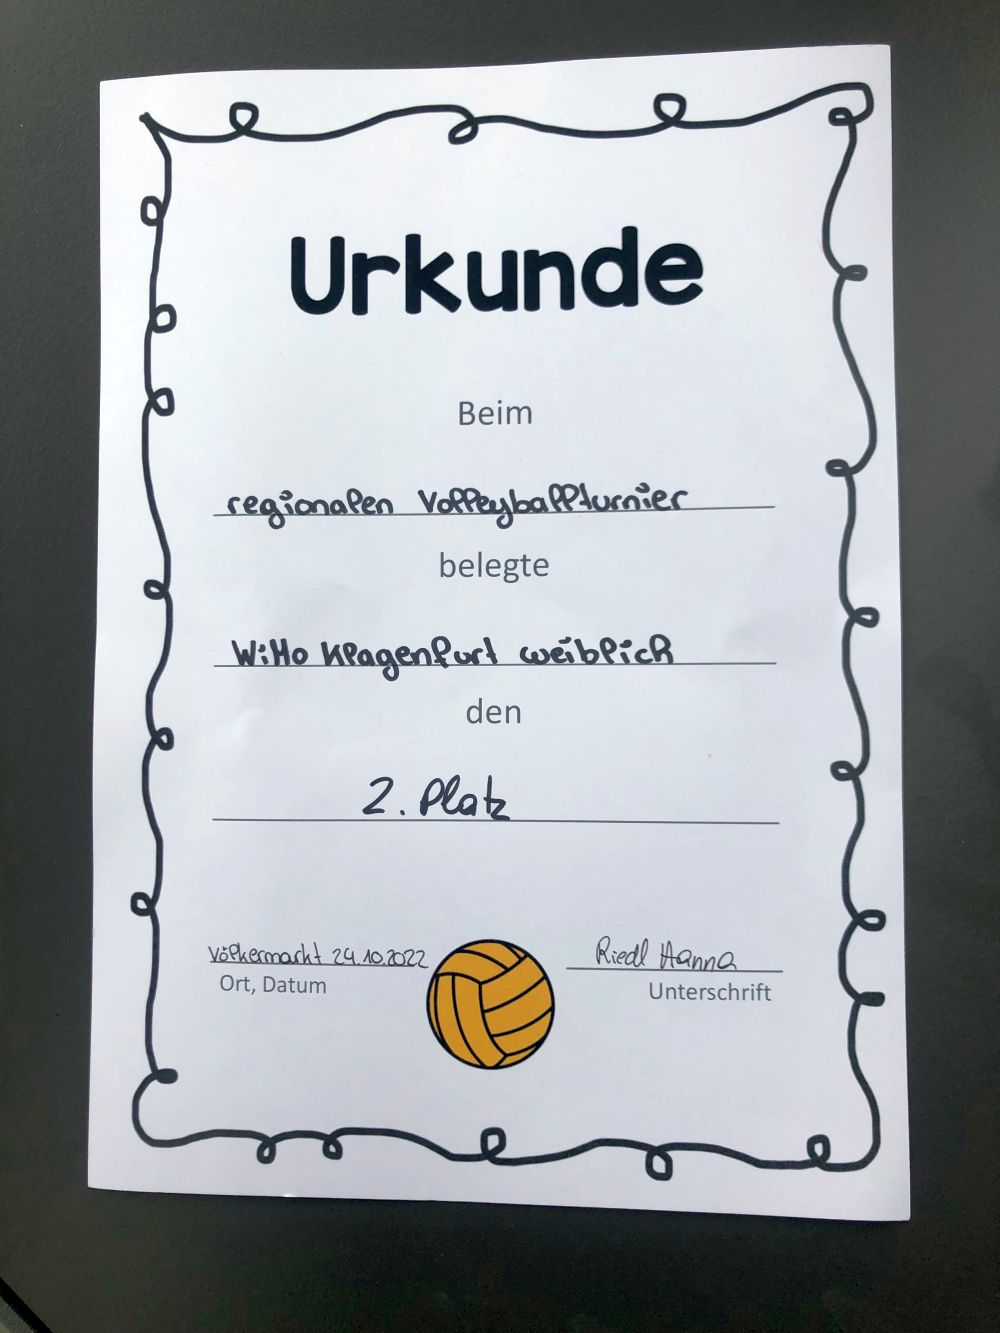 Urkunde
Beim
regionalen Volleyballturnier
belegte
WiMo Klagenfurt weiblich
den
2. Platz
Völkermarkt 24.10.2022
Riedl Hanna
Ort, Datum
Unterschrift